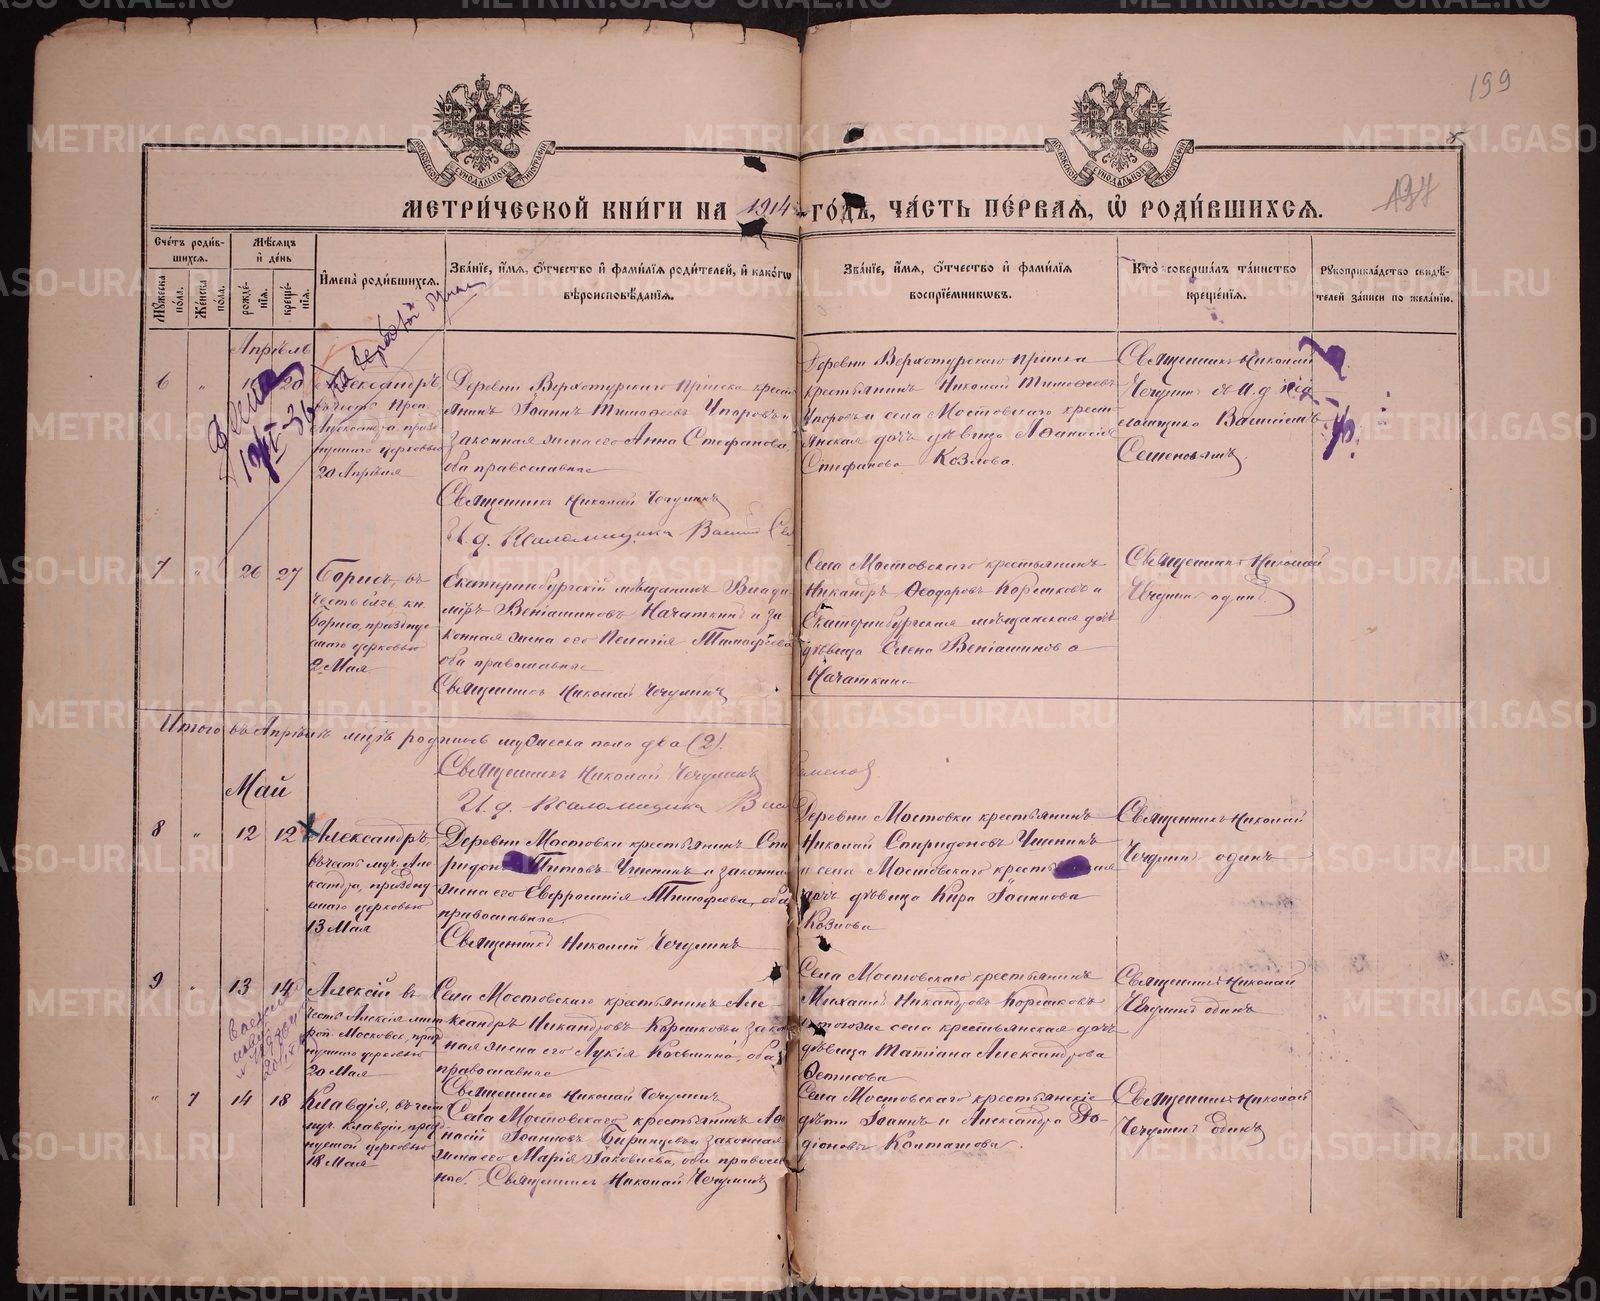 199
197
МЕТРИ́ЧЕСКОЙ КНИ́ГИ НА 1914 ГО́ДЪ, ЧА́СТЬ ПЕ́РВАЯ, Ѡ РОДИ́ВШИХСЯ.
Сче́тъ роди́вшихся.
Му́жеска по́ла.
Же́нска по́ла.
Мѣ́сяцъ и де́нь
рожде́нїя.
креще́нїя.
Имена̀ роди́вшихся.
Зва́нїе, и́мя, о́тчество и фами́лїя роди́телей, и како́гѡ вѣроисповѣ́данїя.
Зва́нїе, и́мя, о́тчество и фами́лїя воспрїе́мникѡвъ.
Кто̀ соверша́лъ та́инство креще́нїя.
Рукоприкла́дство свидѣ́телей за́писи по жела́нїю.
Апрѣль
6 " 20
Александръ,
въ честь Преп.
Александра, празд-
нуемаго церковью
20 Апрѣля
Деревни Верхотурскаго Прiиска кресть-
янинъ Iоаннъ Тимофеевъ Упоровъ и
законная жена его Анна Стефанова,
оба православные
Священникъ Николай Чечулинъ
И. д. Псаломщика Василій Се
Деревни Верхотурскаго прiиска
крестьянинъ Николай Тимофеевъ
Упоровъ и села Мостовскаго кресть-
янская дочь дѣвица Афанасія
Стефанова Козлова.
Священникъ Николай
Чечулинъ съ И. д. Пса-
ломщика Василіемъ
Семеновымъ
7 " 26 27
Борисъ, въ
честь благ. кн.
Бориса, праздну-
емаго церковью
2 Мая
Екатеринбургскій мѣщанинъ Влади-
міръ Веніаминовъ Начаткинъ и за-
конная жена его Пелагія Тимофеева
оба православные
Священникъ Николай Чечулинъ
Села Мостовскаго крестьянинъ
Никандръ Ѳеодоровъ Коршковъ и
Екатеринбургская мѣщанская дочь
дѣвица Елена Веніаминова
Начаткина
Священникъ Николай
Чечулинъ одинъ
Итого въ Апрѣлѣ мцѣ родилось мужеска пола два (2).
Священникъ Николай Чечулинъ
И. д. Псаломщика Васи Семенов
Май
8 " 12 12
Александръ,
въ честь муч. Алек-
сандра, праздну-
емаго церковью
13 Мая
Деревни Мостовки крестьянинъ Спи-
ридонъ Титовъ Чипинъ и законная
жена его Евфросинія Тимофеева, оба
православные.
Священникъ Николай Чечулинъ
Деревни Мостовки крестьянинъ
Николай Спиридоновъ Чипинъ
и села Мостовскаго крестьянская
дочь дѣвица Кира Іоаннова
Козлова
Священникъ Николай
Чечулинъ одинъ
9 " 13 14
Алексій въ
честь Алексія мит-
роп. Московск., праз-
нуемаго церковью
20 Мая
Села Мостовскаго крестьянинъ Але-
ксандръ Никандровъ Коршковъ и закон-
ная жена его Лукія Косьмина, оба
православные
Священникъ Николай Чечулинъ
Села Мостовскаго крестьянинъ
Михаилъ Никандровъ Коршковъ
и тогоже села крестьянская дочь
дѣвица Татіана Александрова
Священникъ Николай
Чечулинъ одинъ
" 1 14 18
Клавдія, въ честь
муч. Клавдіи, празд-
нуемой церковью
18 Мая
Села Мостовскаго крестьянинъ Аѳа-
насій Іоанновъ Бирюцевъ и законная
жена его Марія Іаковлева, оба правосл-
ные. Священникъ Николай Чечулинъ
Села Мостовскаго крестьянскіе
дѣти Іоаннъ и Александра Ро-
діоновы Колташова
Священникъ Николай
Чечулинъ одинъ
METRIKI.GASO-URAL.RU